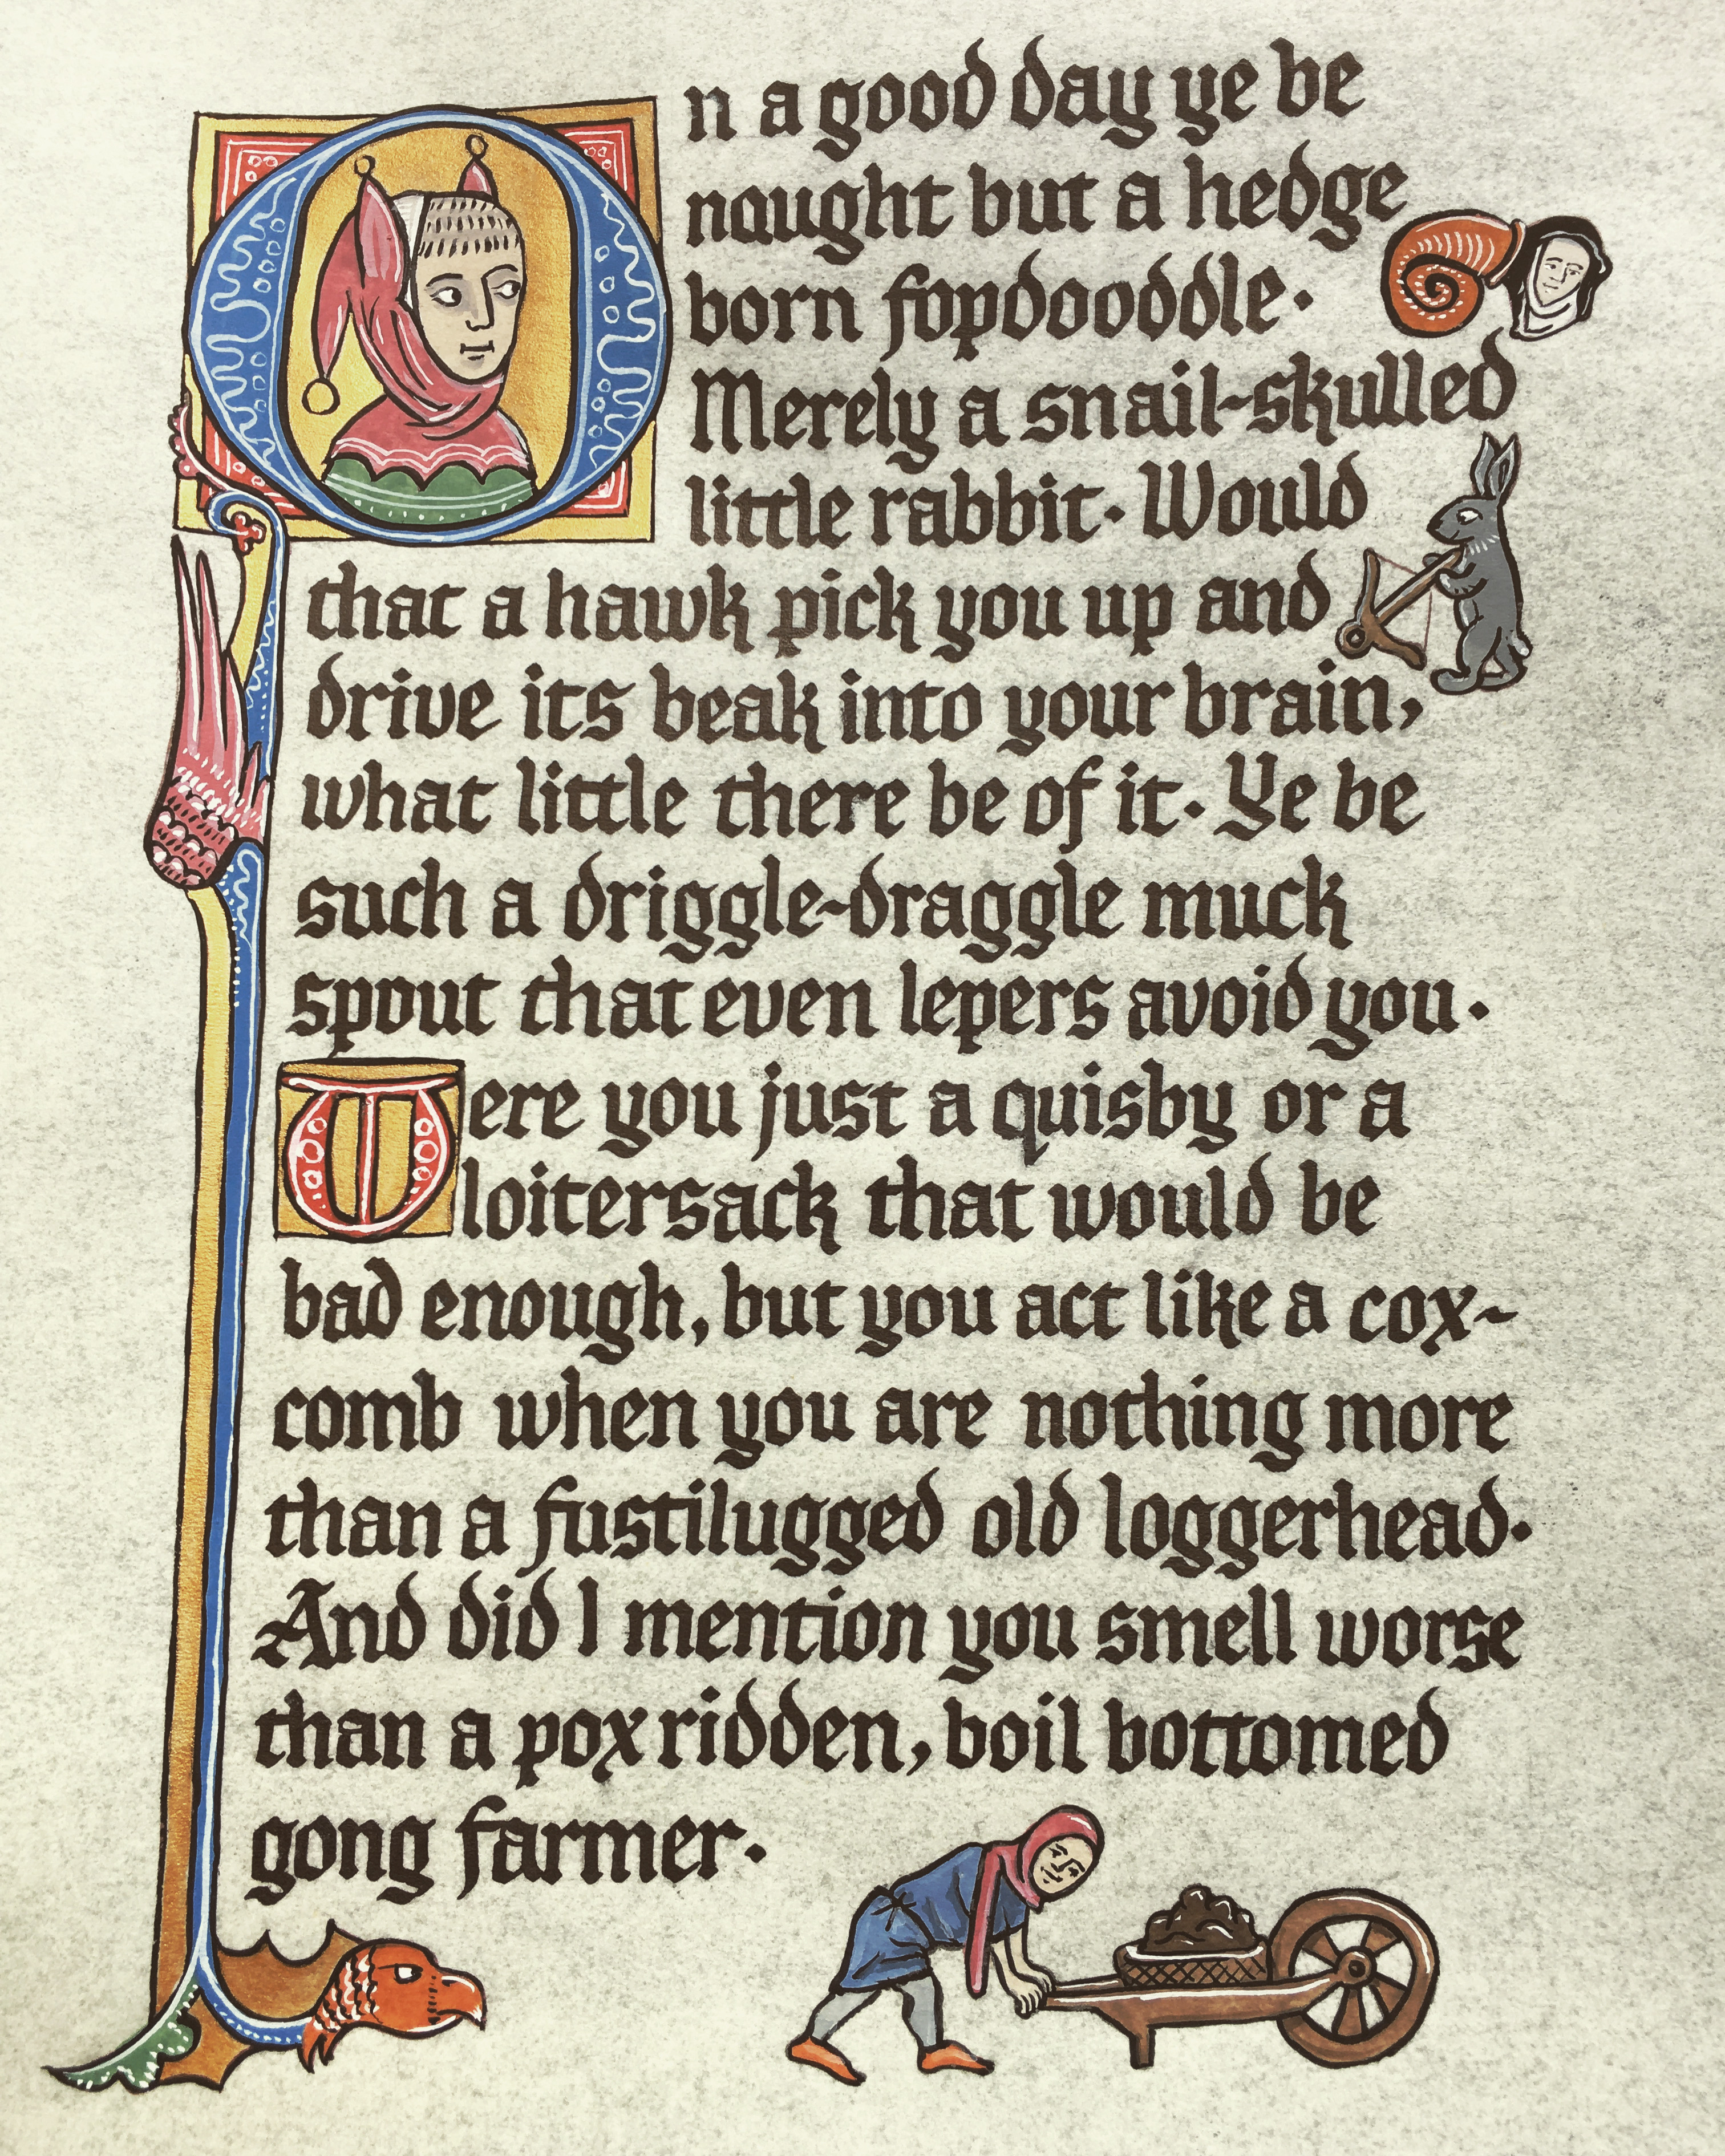 On a good day ye be
naught but a hedge
born fopdooddle.
Merely a snail-skulled
little rabbit. Would
that a hawk pick you up and
drive its beak into your brain,
what little there be of it. Ye be
such a driggle-draggle muck
spout that even lepers avoid you.
Were you just a quisby or a
loitersack that would be
bad enough, but you act like a cox-
comb when you are nothing more
than a fustilugged old loggerhead.
And did I mention you smell worse
than a pox ridden, boil bottomed
gong farmer.